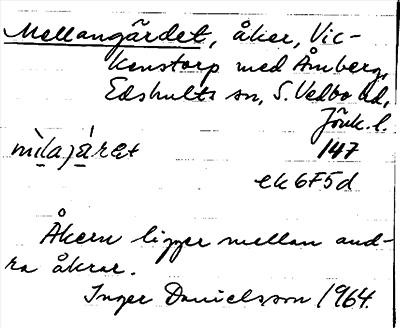 Mellangärdet, åker, Vic-
kenstorp med Åmberg,
Edshults sn, S. Vedbo hd,
Jönk. l.
mìlajǽret 147
ek6F5d
Åkern ligger mellan and-
ra åkrar.
Inger Danielsson 1964.